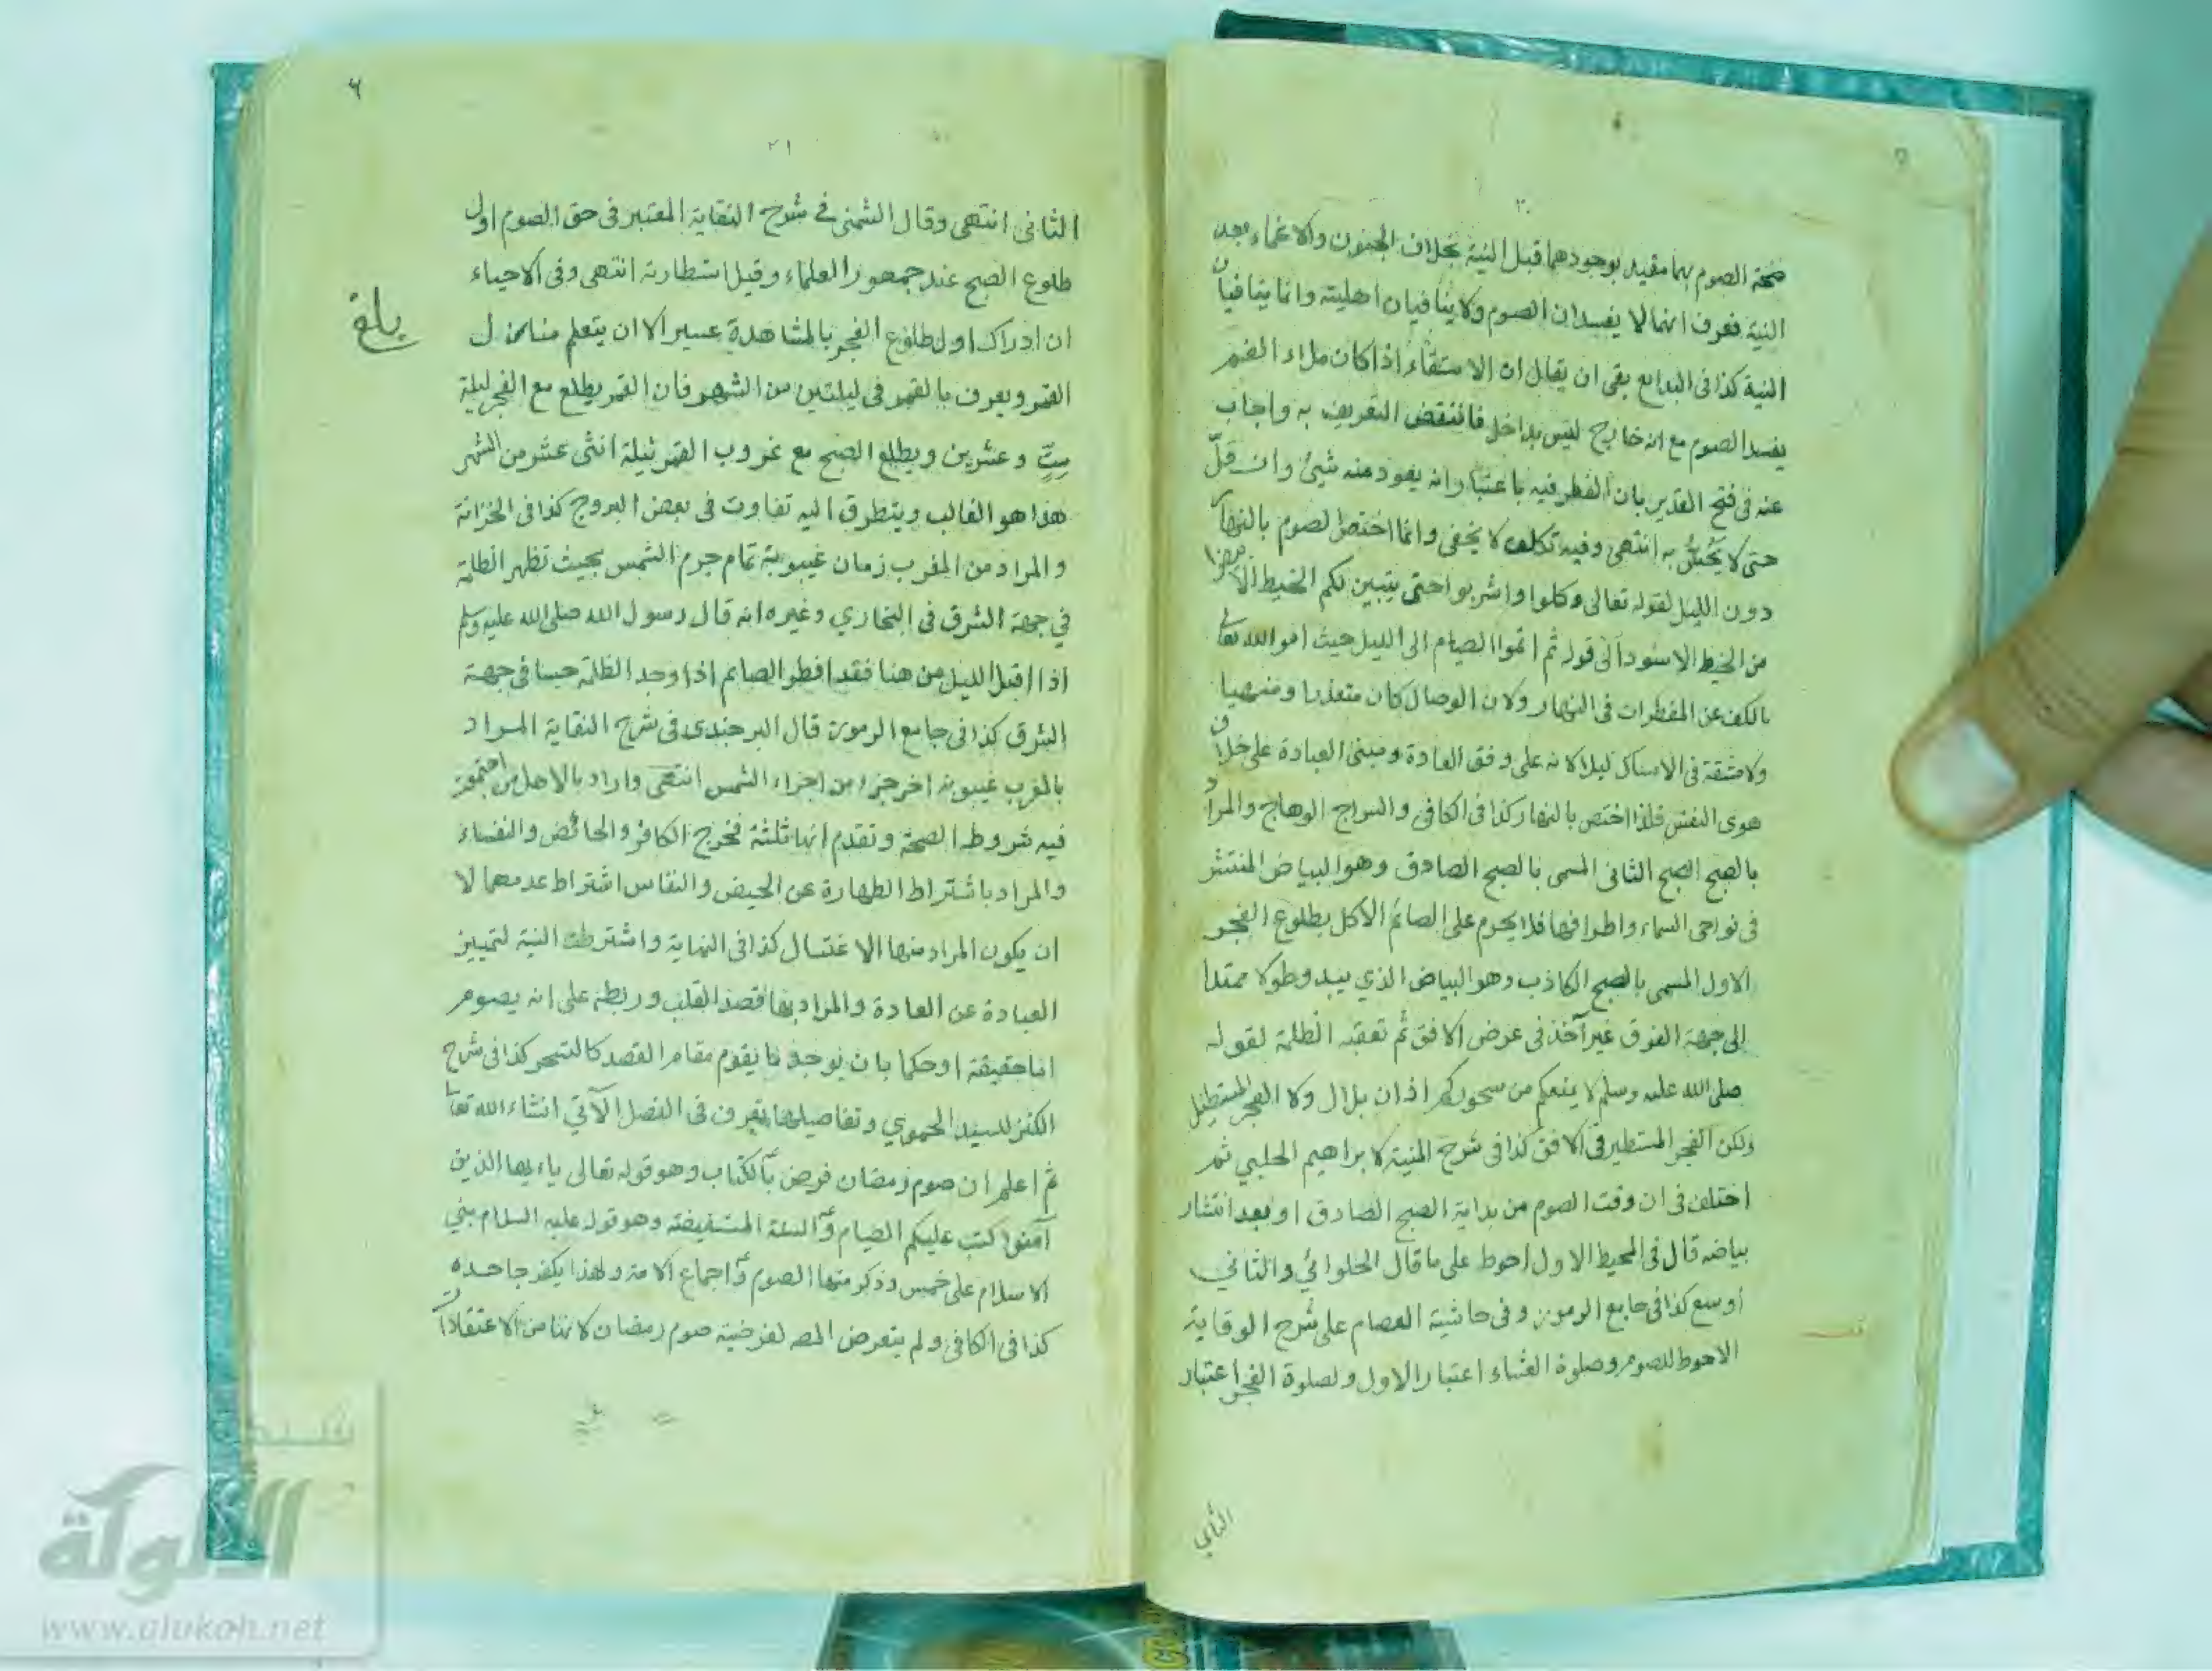 ٢٠
صحة الصوم بهما مقيد بوجودهما قبل النية بخلاف الجنون والاغماء بعد
النية فعرف انهما لا يفسدان الصوم ولا ينافيان اهليته وانما ينافيان
النية كذا في البدايع بقي ان يقال ان الاستقاء اذا كان ملاء الفم
يفسد الصوم مع انه خارج ليس بداخل فانتقض التعريف به واجاب
عنه في فتح القدير بان الفطر فيه باعتبار انه يعود منه شيئ وان قلّ
حتى لا يُحَسُّ به انتهى وفيه تكلف لا يخفى وانما اختص الصوم بالنهار
دون الليل لقوله تعالى وكلوا واشربوا حتى يتبين لكم الخيط الابيض
من الخيط الاسود الى قوله ثم اتموا الصيام الى الليل حيث امر الله تعالى
بالكف عن المفطرات في النهار ولان الوصال كان متعذرا ومنهيا
ولا مشقة في الامساك ليلا لانه على وفق العادة ومبنى العبادة على خلاف
هوى النفس فلذا اختص بالنهار كذا في الكافي والسراج الوهاج والمراد
بالصبح الصبح الثاني المسمى بالصبح الصادق وهو البياض المنتشر
في نواحي السماء واطرافها فلا يحرم على الصائم الاكل بطلوع الفجر
الاول المسمى بالصبح الكاذب وهو البياض الذي يبدو طولا ممتدا
الى جهة الفوق غير آخذ في عرض الافق ثم تعقبه الظلمة لقوله
صلى الله عليه وسلم لا يمنعكم من سحوركم اذان بلال ولا الفجر المستطيل
ولكن الفجر المستطير في الافق كذا في شرح المنية لابراهيم الحلبي ثم
اختلف في ان وقت الصوم من بداية الصبح الصادق او بعد انتشار
بياضه قال في المحيط الاول احوط على ما قال الحلوائي والثاني
اوسع كذا في جامع الرموز وفي حاشية العصام على شرح الوقاية
الاحوط للصوم وصلوة العشاء اعتبار الاول ولصلوة الفجر اعتبار
الثاني
٦
٢١
الثاني انتهى وقال الشمني في شرح النقاية المعتبر في حق الصوم اول
طلوع الصبح عند جمهور العلماء وقيل استطارته انتهى وفي الاحياء
ان ادراك اول طلوع الفجر بالمشاهدة عسير الا ان يتعلم منازل
القمر ويعرف بالقمر في ليلتين من الشهر فان القمر يطلع مع الفجر ليلة
ستٍّ وعشرين ويطلع الصبح مع غروب القمر ليلة اثنى عشر من الشهر
هذا هو الغالب ويتطرق اليه تفاوت في بعض البروج كذا في الخزانة
والمراد من المغرب زمان غيبوبة تمام جرم الشمس بحيث تظهر الظلمة
في جهة الشرق في البخاري وغيره انه قال رسول الله صلى الله عليه وسلم
اذا اقبل الليل من هنا فقد افطر الصائم اذا وجد الظلمة حسا في جهة
الشرق كذا في جامع الرموز قال البرجندي في شرح النقاية المراد
بالمغرب غيبوبة اخر جزء من اجزاء الشمس انتهى واراد بالاهل من اجتمعت
فيه شروط الصحة وتقدم انها ثلثة فخرج الكافر والحائض والنفساء
والمراد باشتراط الطهارة عن الحيض والنفاس اشتراط عدمهما لا
ان يكون المراد منها الاغتسال كذا في النهاية واشترطت النية لتمييز
العبادة عن العادة والمراد بها قصد القلب وربطه على انه يصوم
اما حقيقة او حكما بان يوجد ما يقوم مقام القصد كالتسحر كذا في شرح
الكنز للسيد الحموي وتفاصيلها تعرف في الفصل الآتي انشاء الله تعالى
ثم اعلم ان صوم رمضان فرض بالكتاب وهو قوله تعالى ياءيها الذين
آمنوا كتب عليكم الصيام والسنة المستفيضة وهو قوله عليه السلام بني
الاسلام على خمس وذكر منها الصوم واجماع الامة ولهذا يكفر جاحده
كذا في الكافي ولم يتعرض المص لفرضية صوم رمضان لانها من الاعتقادات
بلغ
شبكة
الألوكة
www.alukah.net